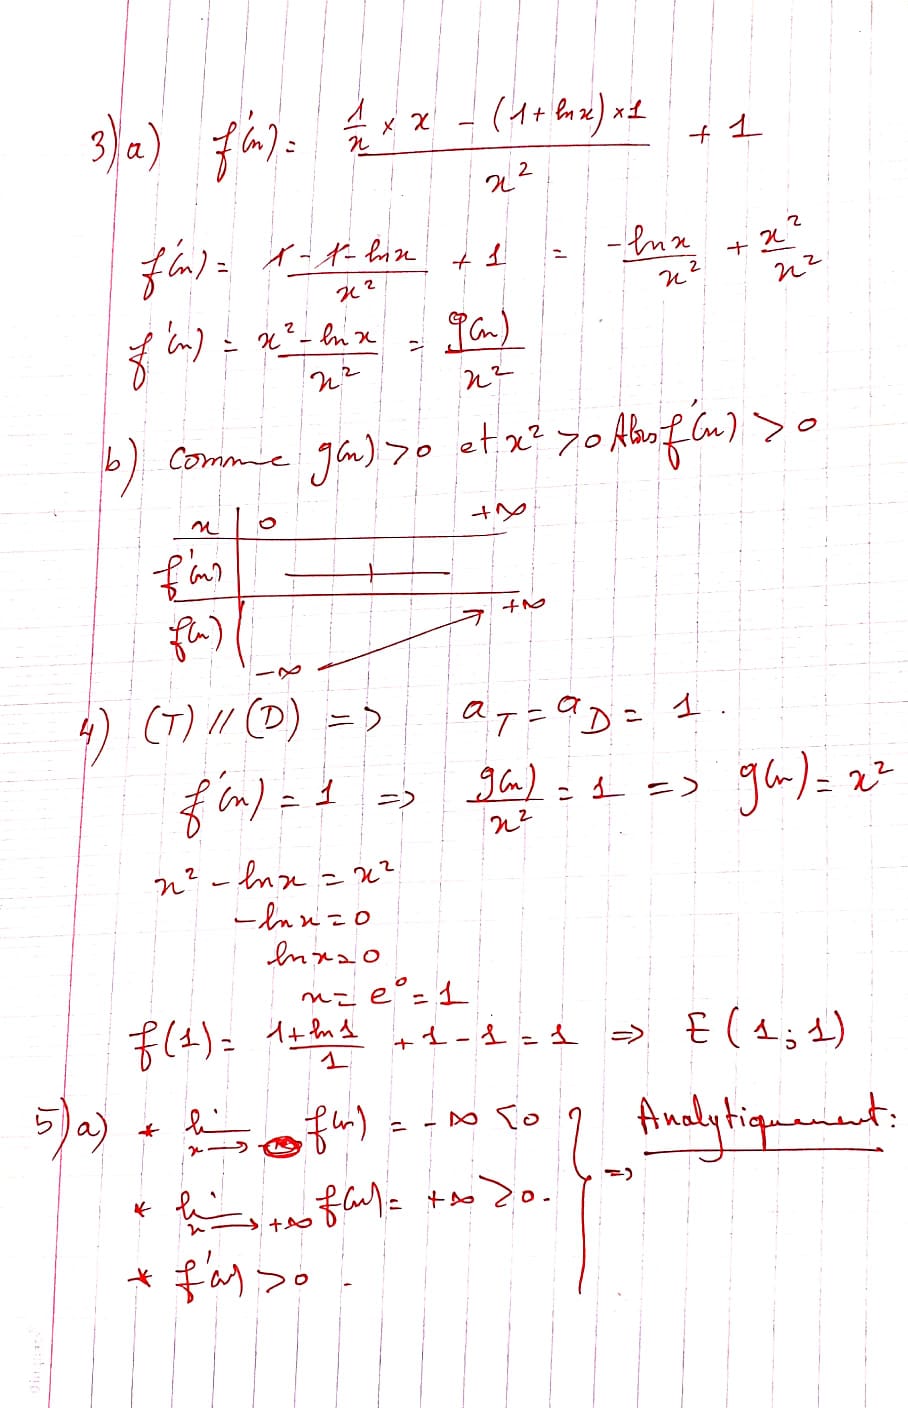 3) a) f'(x) = (1/x × x - (1 + ln x) × 1)/x² + 1
f'(x) = (1 - 1 - ln x)/x² + 1 = -ln x/x² + x²/x²
f'(x) = (x² - ln x)/x² = g(x)/x²
b) Comme g(x) > 0 et x² > 0 Alors f'(x) > 0
x 0 +∞
f'(x) +
f(x) -∞ +∞
4) (T) // (D) => a_T = a_D = 1.
f'(x) = 1 => g(x)/x² = 1 => g(x) = x²
x² - ln x = x²
-ln x = 0
ln x = 0
x = e⁰ = 1
f(1) = (1 + ln 1)/1 + 1 - 1 = 1 => E (1; 1)
5) a) * lim x→ f(x) = -∞ < 0 } => Analytiquement:
* lim x→+∞ f(x) = +∞ > 0.
* f'(x) > 0.